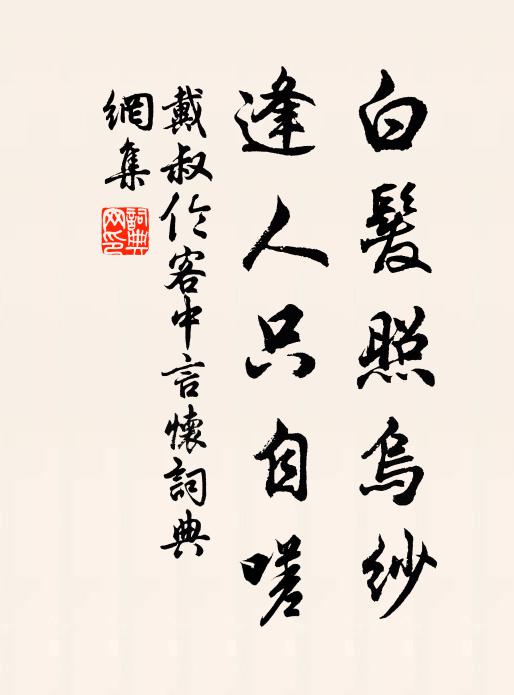 白髮照烏紗
逢人只自嗟
戴叔伦客中言懷詞典
網集
詞典
网印